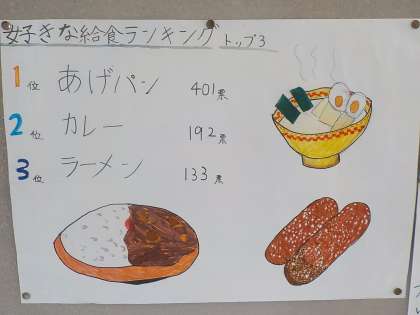 好きな給食ランキングトップ3
1位 あげパン 401票
2位 カレー 192票
3位 ラーメン 133票